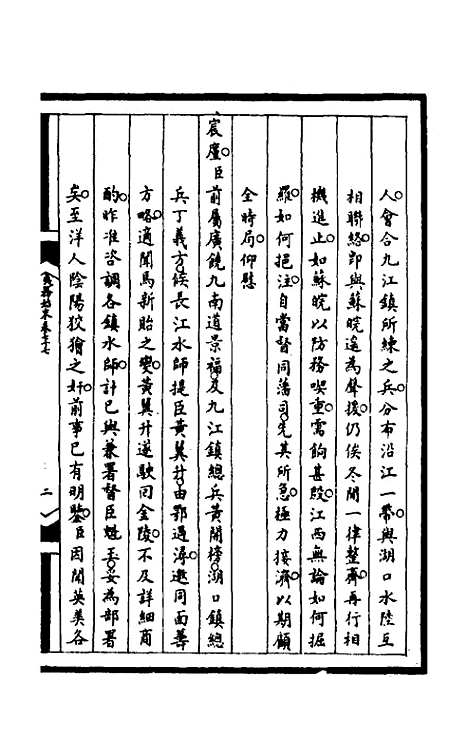 人會合九江鎮所練之兵分布沿江一帶與湖口水陸互
相聯絡即與蘇皖遙為聲援仍俟冬間一律整齊再行相
機進止如蘇皖以防務喫重需餉甚殷江西無論如何掘
羅如何挹注自當督同藩司先其所急極力接濟以期顧
全時局仰慰
宸廑臣前屬廣饒九南道景福及九江鎮總兵黃開榜湖口鎮總
兵丁義方候長江水師提臣黃翼升由鄂過潯邀同面善
方略適聞馬新貽之變黃翼升遂駛回金陵不及詳細商
酌昨准咨調各鎮水師計已與兼署督臣魁玉妥為部署
矣至洋人陰陽狡獪之奸前事已有明鑒臣因聞英美各
二